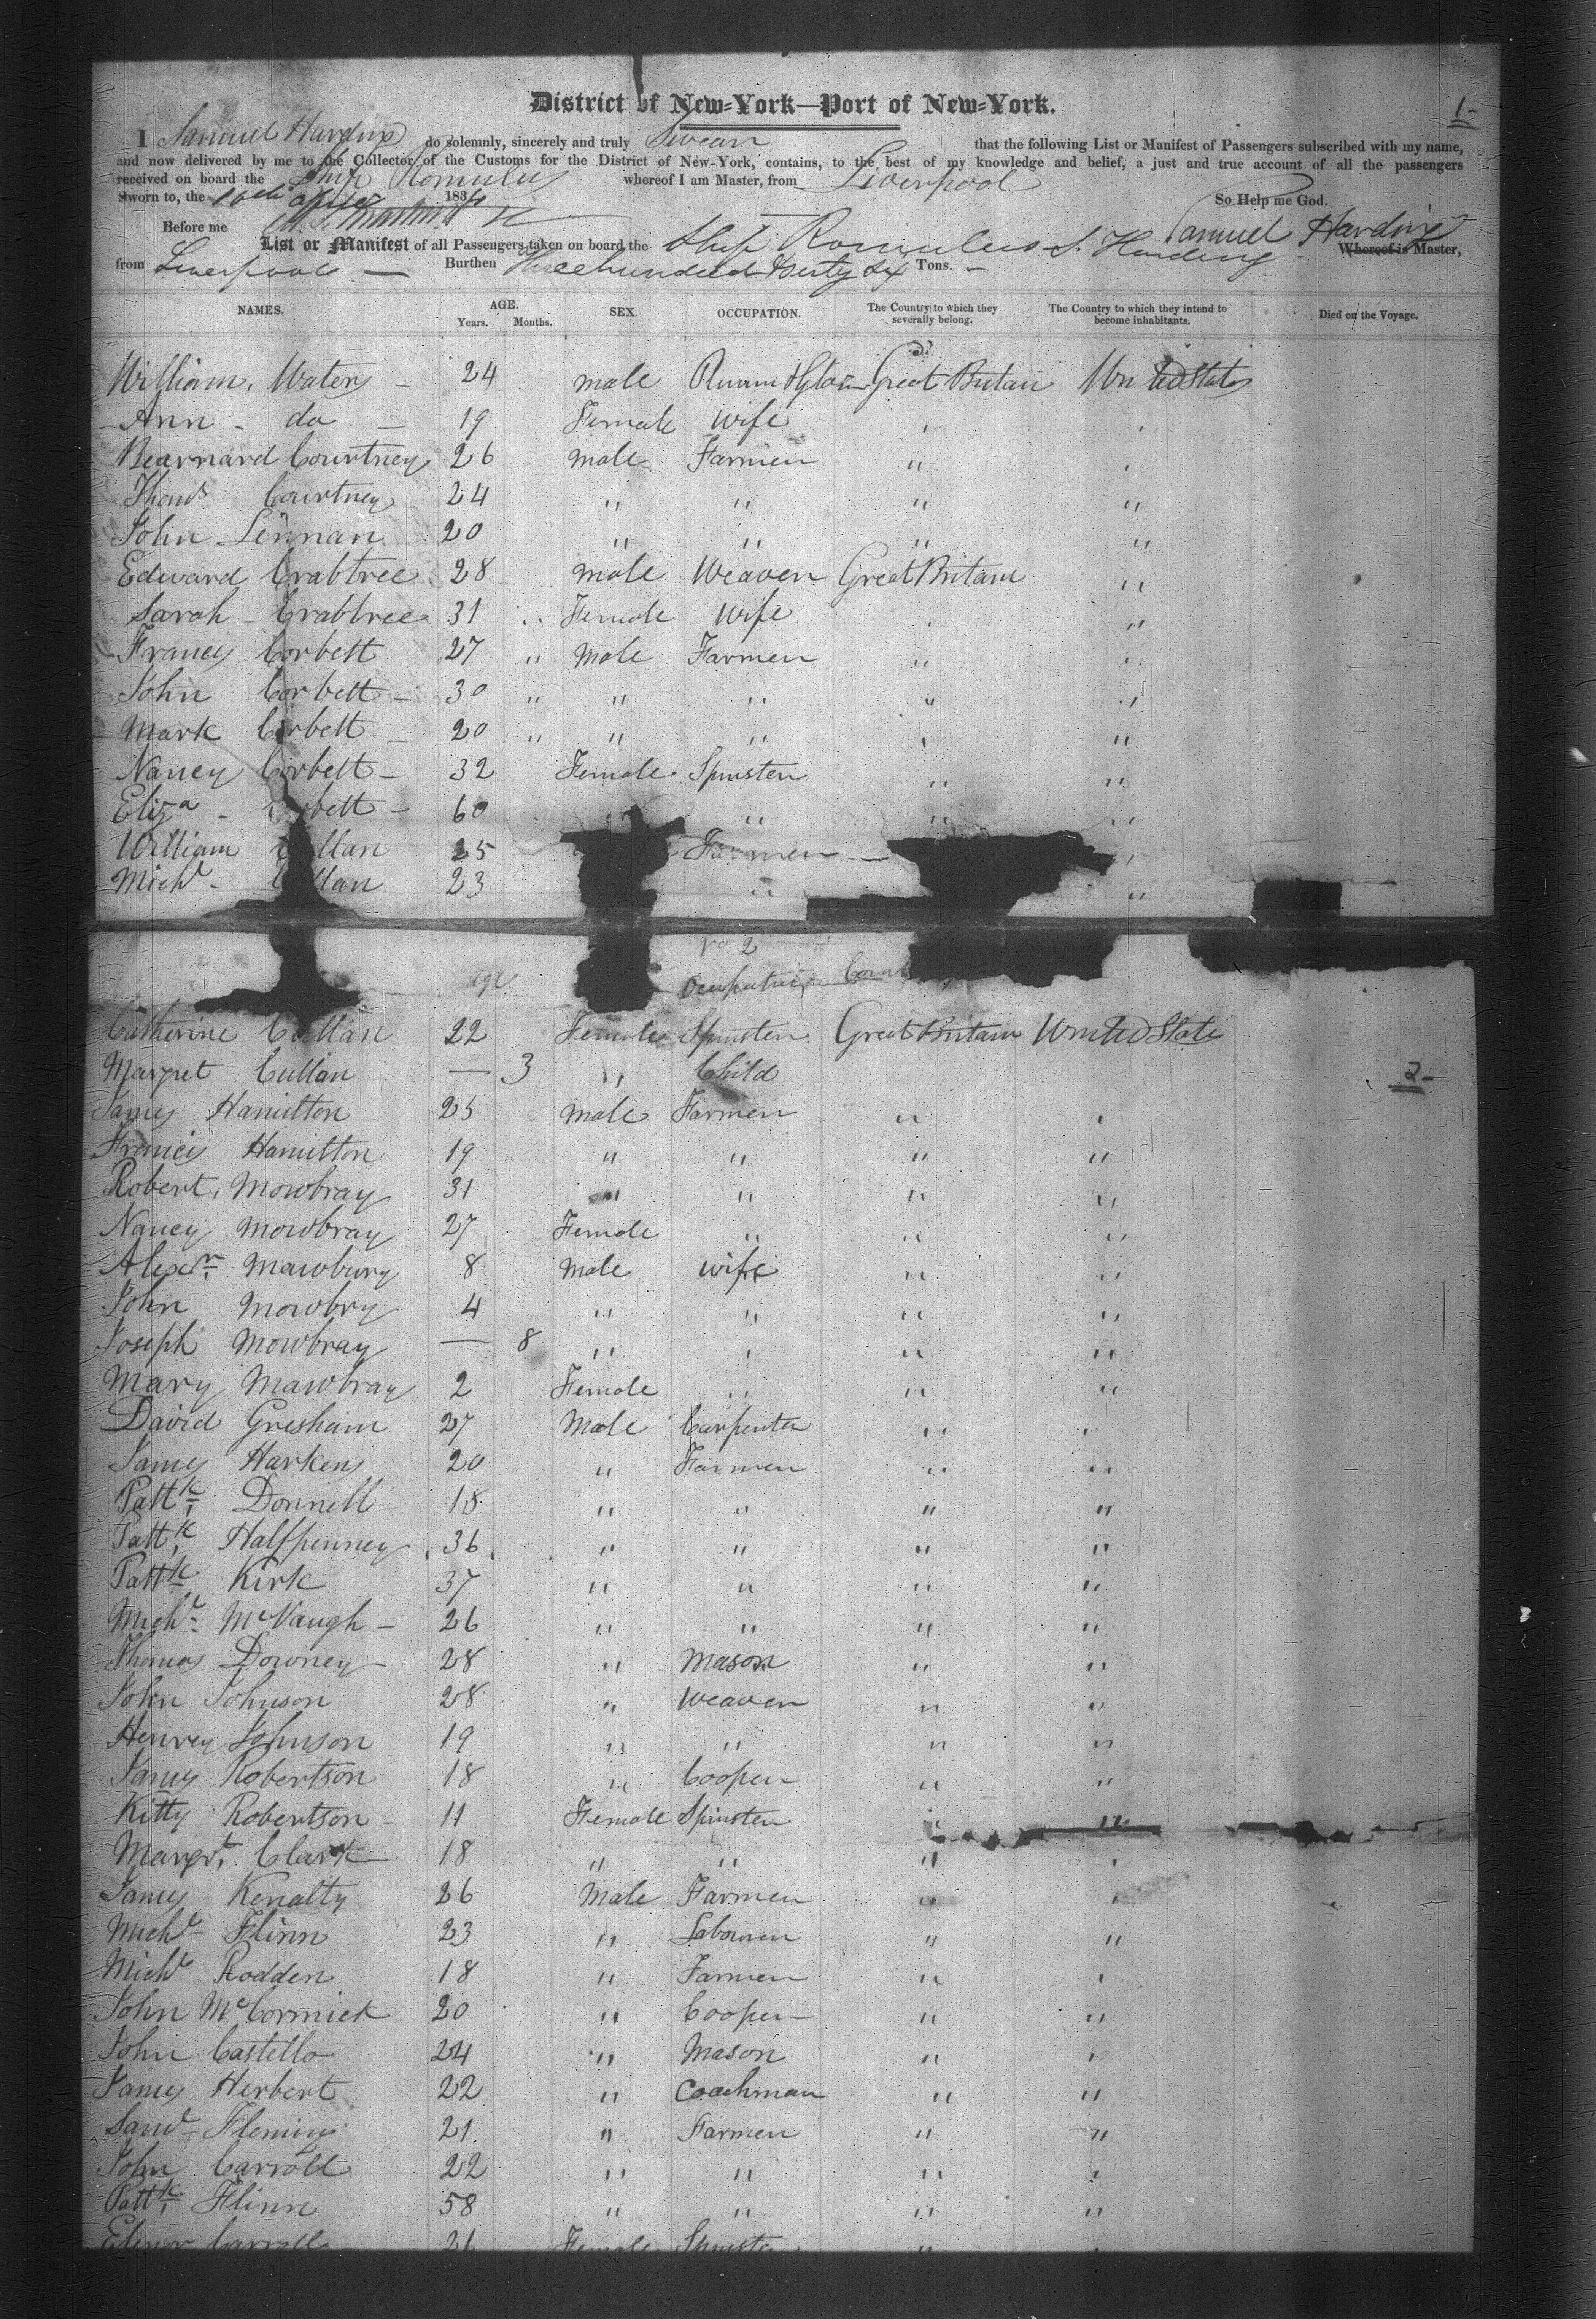 District of New-York—Port of New-York.
1-
I Samuel Harding do solemnly, sincerely and truly Swear that the following List or Manifest of Passengers subscribed with my name,
and now delivered by me to the Collector of the Customs for the District of New-York, contains, to the best of my knowledge and belief, a just and true account of all the passengers
received on board the Ship Romulus whereof I am Master, from Liverpool
Sworn to, the 183 So Help me God.
Before me Samuel Harding
List or Manifest of all Passengers taken on board the Ship Romulus S. Harding Whereof is Master,
from Liverpool — Burthen Three hundred & Tons. —
NAMES. AGE. Years. Months. SEX. OCCUPATION. The Country to which they severally belong. The Country to which they intend to become inhabitants. Died on the Voyage.
William Waters – 24 male Great Britain United States
Ann - do – 19 Female wife " "
Bearnard Courtney 26 male Farmer " "
Thoms Courtney 24 " " " "
John Lennan 20 " " " "
Edward Crabtree 28 male Weaver Great Britain "
Sarah - Crabtree 31 " Female wife " "
Francis Corbett 27 " Male Farmer " "
John Corbett – 30 " " " " "
Mark Corbett – 20 " " " " "
Nancy Corbett – 32 Female Spinster " "
Eliza - bett – 60 " " "
William llan 25 Farmer — "
Michl - llan 23 " "
No 2
age Occupation
Catherine Cullan 22 Female Spinster Great Britain United State
Margret Cullan — 3 " Child 2-
James Hamilton 25 Male Farmer " "
Francis Hamilton 19 " " " "
Robert Mowbray 31 " " " "
Nancy Mowbray 27 Female " " "
Alexr Mawbury 8 Male wife " "
John Mowbry 4 " " " "
Joseph Mowbray — 8 " " " "
Mary Mawbray 2 Female " " "
David Gresham 27 Male Carpenter " "
James Harkens 20 " Farmer " "
Pattk Donnell – 18 " " " "
Pattk Halfpenney 36 " " " "
Pattk Kirk 37 " " " "
Michl McVaugh – 26 " " " "
Thomas Downey 28 " Mason " "
John Johnson 28 " Weaver " "
Henrey Johnson 19 " " " "
James Robertson 18 " Cooper " "
Kitty Robertson – 11 Female Spinster " "
Margrt Clark 18 " " " "
James Kenalty 26 Male Farmer " "
Michl Flinn 23 " Labourer " "
Michl Rodden 18 " Farmer " "
John McCormick 20 " Cooper " "
John Castello 24 " Mason " "
James Herbert 22 " Coachman " "
Saml Fleming 21 " Farmer " "
John Carroll 22 " " " "
Pattk Flinn 58 " " " "
Elenor Carroll 21 Female Spinster " "